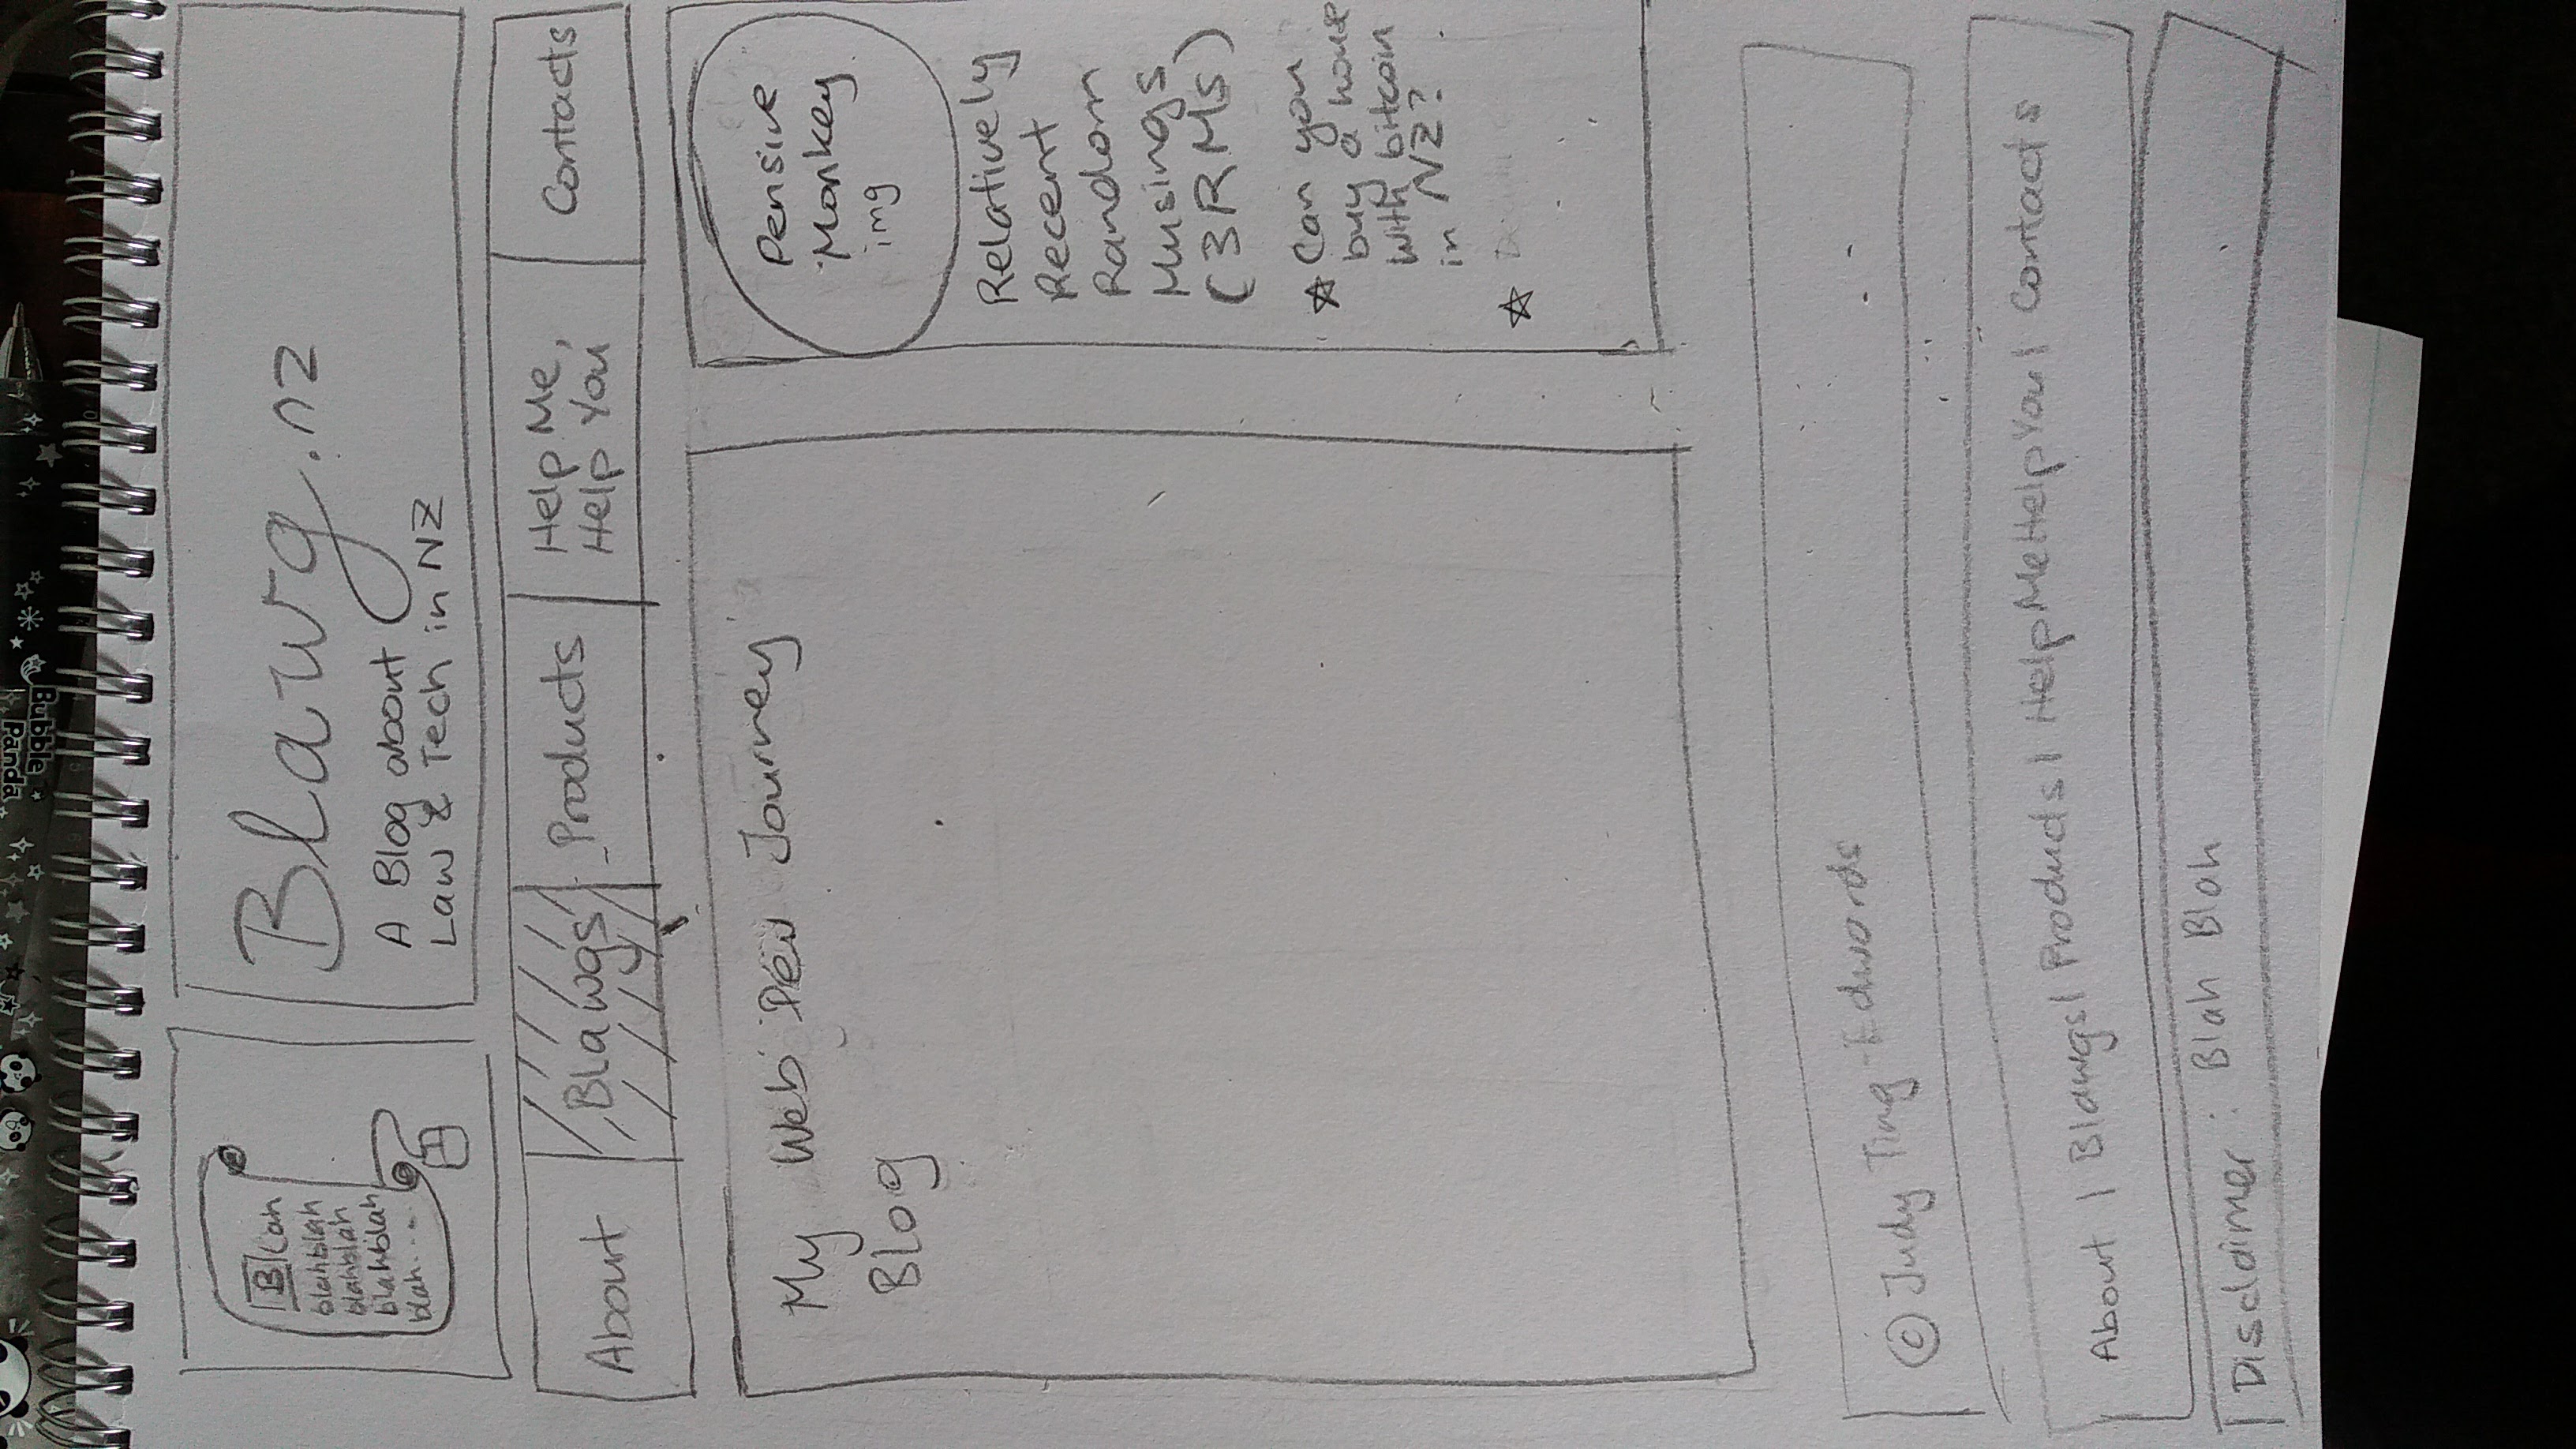 Bubble
Panda
Blah
blahblah
blahblah
blahblah
blah.....
Blawg.nz
A Blog about
Law & Tech in NZ
About
Blawgs
Products
Help Me,
Help You
Contacts
My Web Dev Journey
Blog
Pensive
Monkey
img
Relatively
Recent
Random
Musings
(3RMs)
☆ Can you
buy a house
with bitcoin
in NZ?
☆
© Judy Ting-Edwards
About | Blawgs | Products | HelpMeHelpYou | Contacts
Disclaimer : Blah Blah